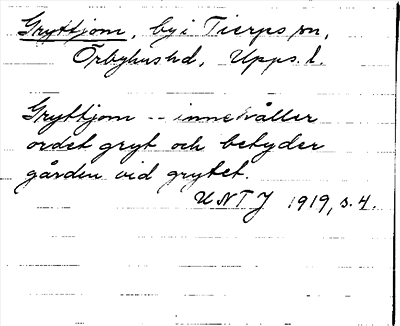 Gryttjom, by i Tierps sn,
Örbyhus hd, Upps. l.
Gryttjom -- innehåller
ordet gryt och betyder
gården vid grytet.
UNT J 1919, s. 4.